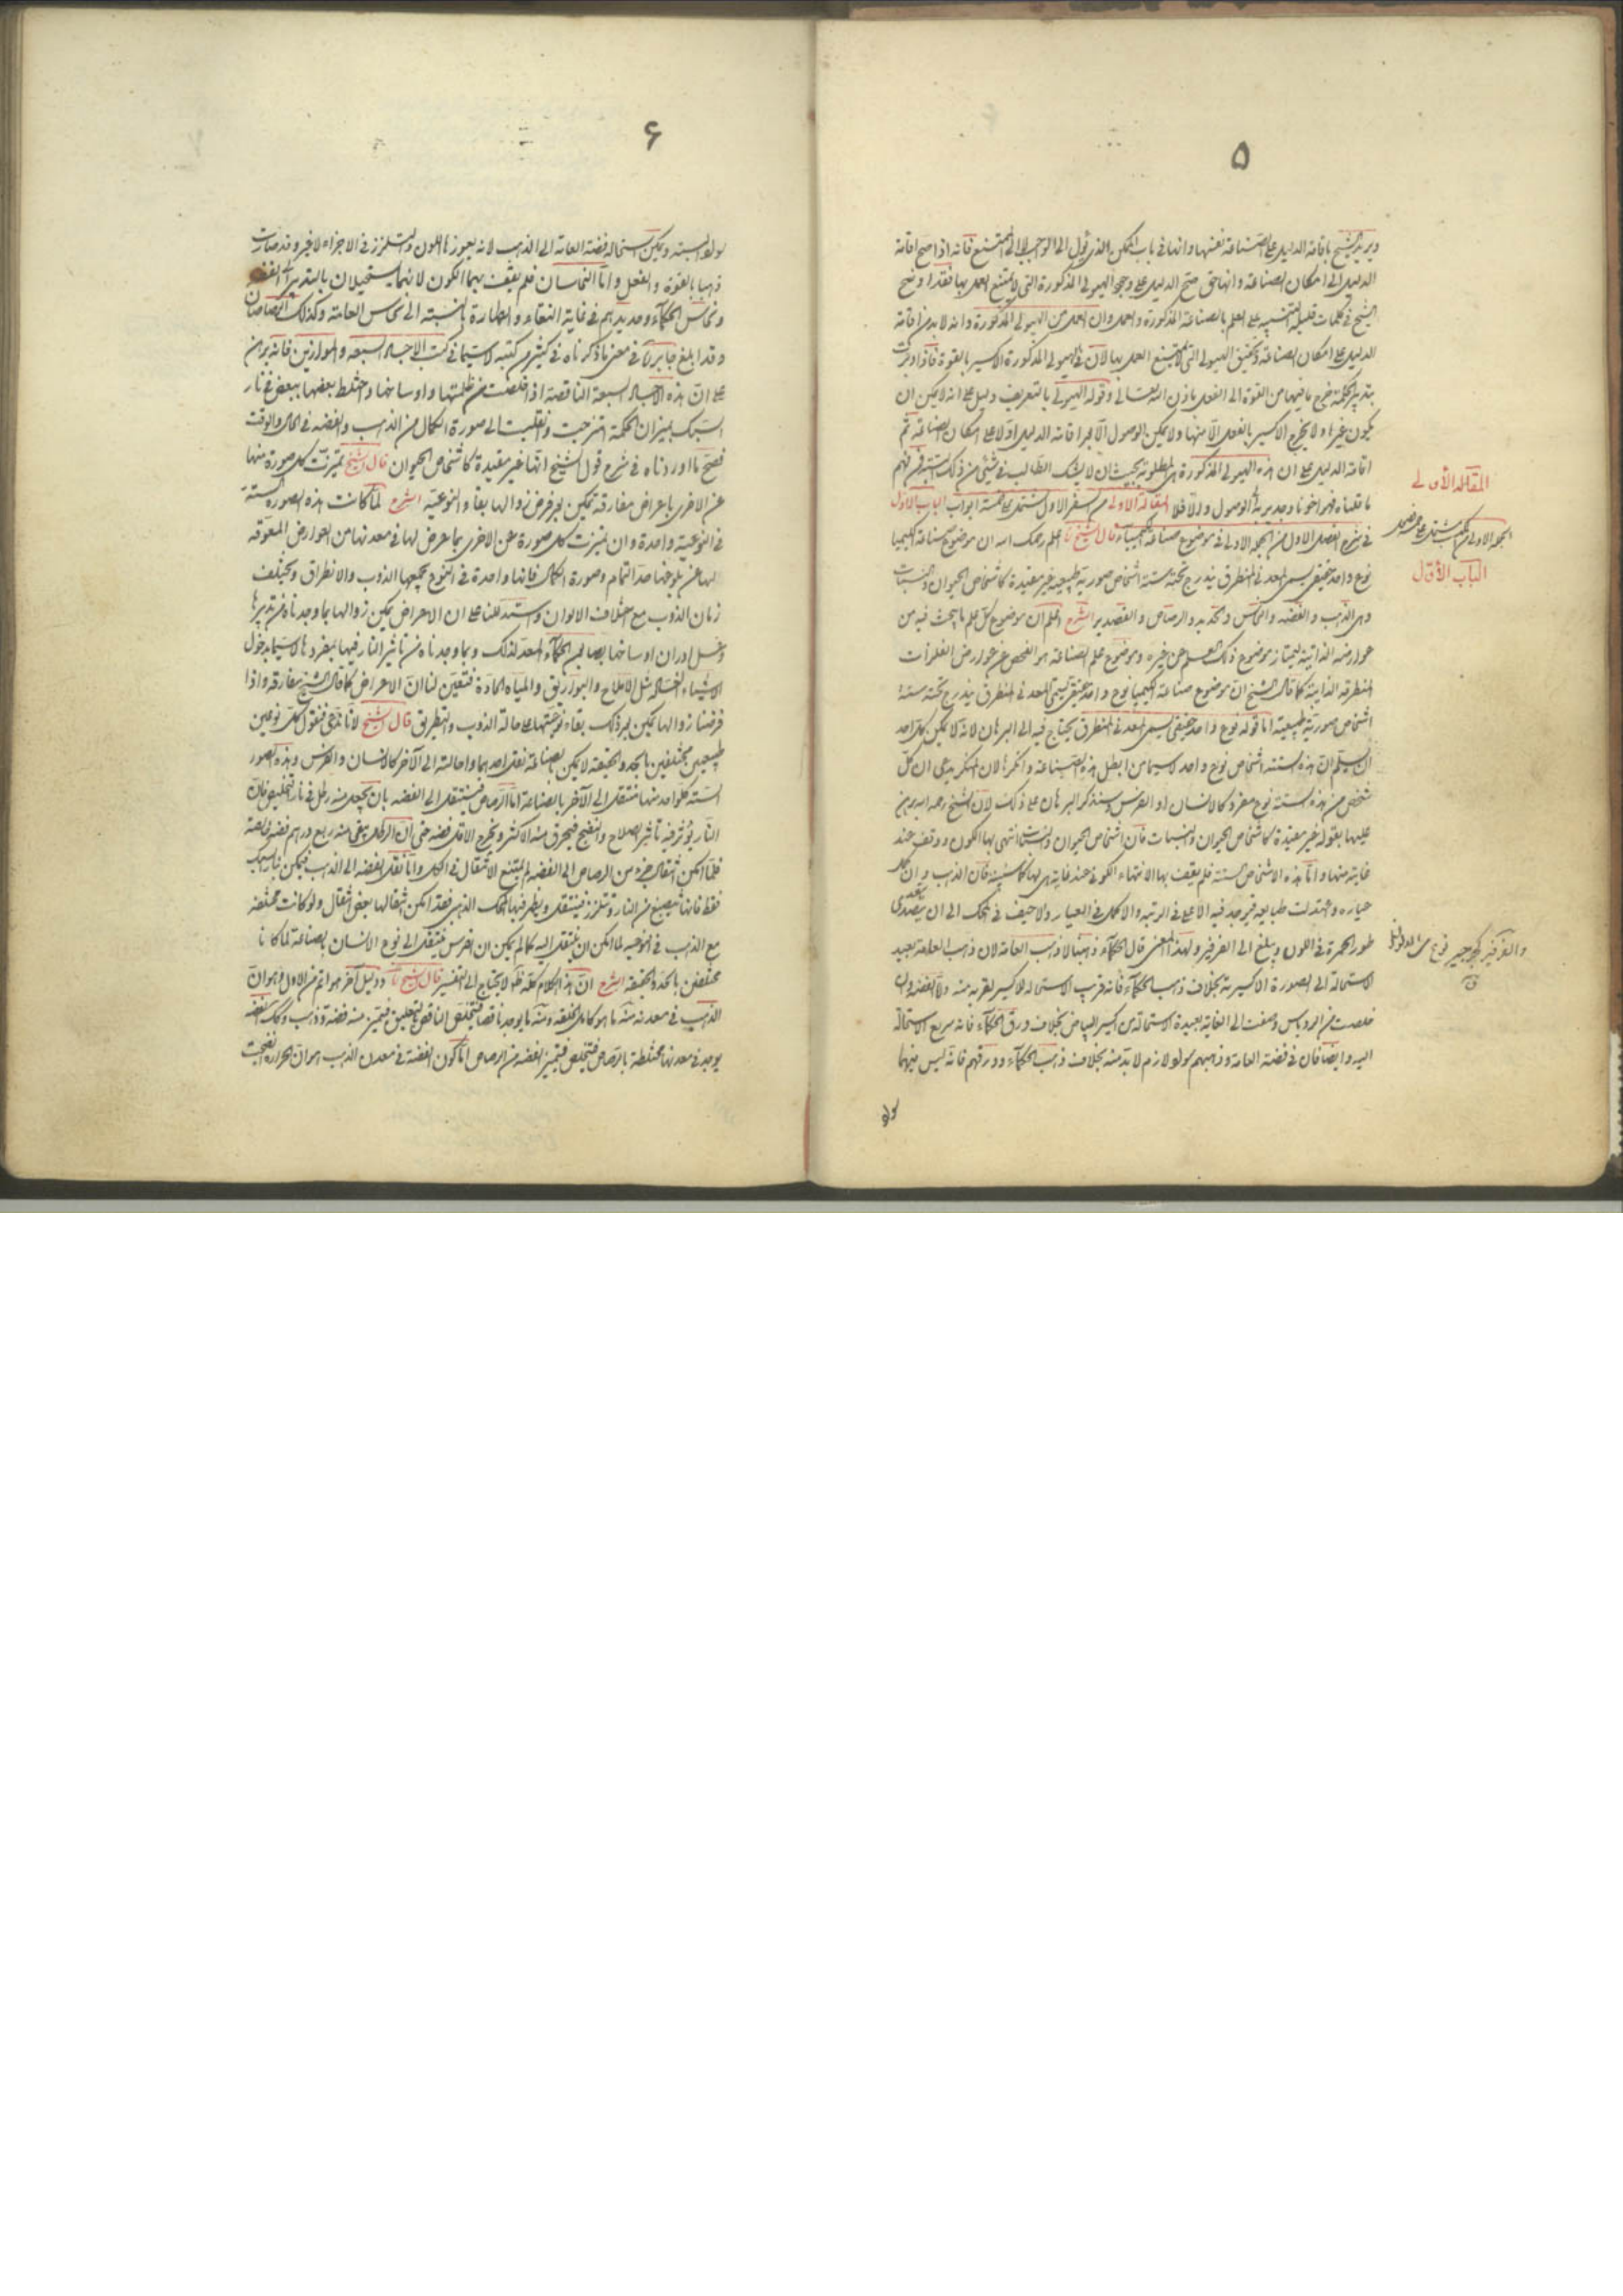 ۵
ويريد الشيخ باقامة الدليل على الصناعة نفسها وانها في باب الممكن الذي يؤل الى الواجب لا الى الممتنع فانه اذا صح اقامة
الدليل الى امكان الصناعة وانها حق صح الدليل على وجود الهيولى المذكورة التي لا يمتنع العمل بها فقد اوضح
الشيخ في كلمات قليلة التنبيه على العلم بالصناعة المذكورة والعمل وان العمل من الهيولى المذكورة وانه لا بد من اقامة
الدليل على امكان الصناعة وتحقيق الهيولى التي لا يمتنع العمل بها لان في الهيولى المذكورة الاكسير بالقوة فاذا دبرت
بتدبير الحكمة خرج ما فيها من القوة الى الفعل باذن الله تعالى وقوله الهيولى بالتعريف دليل على انه لا يمكن ان
يكون غيرها ولا يخرج الاكسير بالفعل الا منها ولا يمكن الوصول الا بعد اقامة الدليل اولا على امكان الصناعة ثم
اقامة الدليل على ان هذه الهيولى المذكورة هي المطلوبة بحيث ان لا يشك الطالب في شيئ من ذلك البتة فمن فهم
ما قلناه فهو اخونا وجدير بالوصول والا فلا المقالة الاولى من السفر الاول تشتمل على خمسة ابواب الباب الاول
في شرح الفصل الاول من الجملة الاولى في موضوع صناعة الكيمياء قال الشيخ اعلم رحمك الله ان موضوع صناعة الكيميا
نوع واحد حقيقي يسمى المعدني المنطرق يندرج تحته ستة اشخاص صورية طبيعية غير مقيدة كاشخاص الحيوان والنبات
وهي الذهب والفضة والنحاس والحديد والرصاص والقصدير الشرح اعلم ان موضوع كل علم ما يبحث فيه عن
عوارضه الذاتية ليمتاز موضوع ذلك العلم عن غيره وموضوع علم الصناعة هو الفحص عن عوارض الفلزات
المنطرقة الذاتية كما قال الشيخ ان موضوع صناعة الكيميا نوع واحد حقيقي يسمى المعدني المنطرق يندرج تحته ستة
اشخاص صورية طبيعية اما قوله نوع واحد حقيقي يسمى المعدني المنطرق يحتاج فيه الى البرهان لانه لا يمكن كل احد
ان يسلم ان هذه الستة اشخاص نوع واحد لا سيما من ابطل هذه الصناعة وانكرها لان المنكر يدعي ان كل
شخص من هذه الستة نوع مفرد كالانسان او الفرس وسنذكر البرهان على ذلك لان الشيخ رحمه الله برهن
عليها بقوله غير مقيدة كاشخاص الحيوان والنبات فان اشخاص الحيوان والنبات انتهى بها الكون ووقف عند
غاية منها واما هذه الاشخاص الستة فلم يقف بها الانتهاء الكوني عند غاية هي لها كما سنبينه فان الذهب وان كمل
عياره واعتدلت طبايعه فيوجد فيه الاعلى في الرتبة والاكمل في العيار ولا حيف في المحك الى ان يتعدى
طور الحمرة في اللون ويبلغ الى الفرفير ولهذا المعنى قال الحكماء ذهبنا لا ذهب العامة لان ذهب العامة بعيد
الاستحالة الى الصورة الاكسيرية بخلاف ذهب الحكماء فانه قريب الاستحالة للاكسير لقربه منه والفضة وان
خلصت من الروباس وصفت الى الغاية بعيدة الاستحالة من اكسير البياض بخلاف ورق الحكماء فانه سريع الاستحالة
اليه وايضا فان في فضة العامة وذهبهم سواد لازم لا بد منه بخلاف ذهب الحكماء وورقهم فانه ليس فيهما
سواد
المقالة الأولى
الجملة الاولى
الباب الأول
۶
سواد البتة ويمكن استحالة فضة العامة الى الذهب لانه يعوزها اللون والتلزز في الاجزاء لا غير وقد صارت
ذهبا بالقوة والفعل واما النحاسان فلم يقف بهما الكون لانهما يستحيلان بالتدبير الى الفضة
ونحاس الحكماء وحديدهم في غاية النقاء والطهارة بالنسبة الى نحاس العامة وكذلك الرصاصان
وقد ابلغ جابر في معنى ما ذكرناه في كثير من كتبه لا سيما في كتب الاجساد السبعة والموازين فانه برهن
على ان هذه الاجساد السبعة الناقصة اذا خلصت من ظلمتها واوساخها واختلط بعضها ببعض في نار
السبك بميزان الحكمة امتزجت وانقلبت الى صورة الكمال من الذهب والفضة في الحال والوقت
فصح ما اوردناه في شرح قول الشيخ انها غير مقيدة كاشخاص الحيوان قال الشيخ تميزت كل صورة منها
عن الاخرى باعراض مفارقة تمكن بعد فرض زوالها بقاء النوعية الشرح لما كانت هذه الصورة الستة
في النوعية واحدة وان تميزت كل صورة عن الاخرى بما عرض لها في معدنها من العوارض المعوقة
لها عن بلوغها حد التمام وصورة الكمال فانها واحدة في النوع يجمعها الذوب والانطراق ويختلف
زمان الذوب مع اختلاف الالوان واستدللنا على ان الاعراض يمكن زوالها بما وجدناه من تدبيرها
وغسل ادران اوساخها بصابون الحكماء المعد لذلك وبما وجدناه من تاثير النار فيها بمفردها لا سيما بدخول
الاشياء الغسالة مثل الاملاح والبوارق والمياه الحادة فتيقن لنا ان الاعراض كما قال الشيخ مفارقة واذا
فرضنا زوالها يمكن بعد ذلك بقاء نوعيتها على حالة الذوب والتطريق قال الشيخ لانا ندعي فنقول كل نوعين
طبيعيين مختلفين بالحد والحقيقة لا يمكن بالصناعة نقل احدهما واحالته الى الآخر كالانسان والفرس وهذه الصور
الستة كل واحد منها منتقل الى الآخر بالصناعة اما الرصاص فينتقل الى الفضة بان يجعل منه رطل في نار التخليص فان
النار يؤثر فيه تاثير الصلاح والنضج فيحرق منه الاكثر ويخرج الاقل فضة حتى ان الرطل يبقى منه ربع درهم فضة خالصة
فلما امكن انتقال جزء من الرصاص الى الفضة لم يمتنع الانتقال في الكل واما نقل الفضة الى الذهب فيمكن بنار السبك
فقط فانها تنصبغ من النار وتتلزز فينتقل ويظهر فيها المحك الذهبي فقد امكن انتقالها بعض انتقال ولو كانت مختلفة
مع الذهب في النوعية لما امكن ان ينتقل اليه كما لم يمكن ان الفرس ينتقل الى نوع الانسان بصناعة لما كانا
مختلفين بالحد والحقيقة الشرح ان هذا الكلام كله ظاهر لا يحتاج الى التفسير قال الشيخ ودليل آخر هو اتم من الاول وهو ان
الذهب في معدنه منه ما هو كامل الخلقة ومنه ما يوجد ناقصا فيتخلص الناقص بالتعليق فيتميز منه فضة وذهب وكذلك الفضة
يوجد في معدنها مختلطة بالرصاص فتتخلص فيتميز الفضة من الرصاص اما كون الفضة في معدن الذهب هو ان الحرارة انضجت